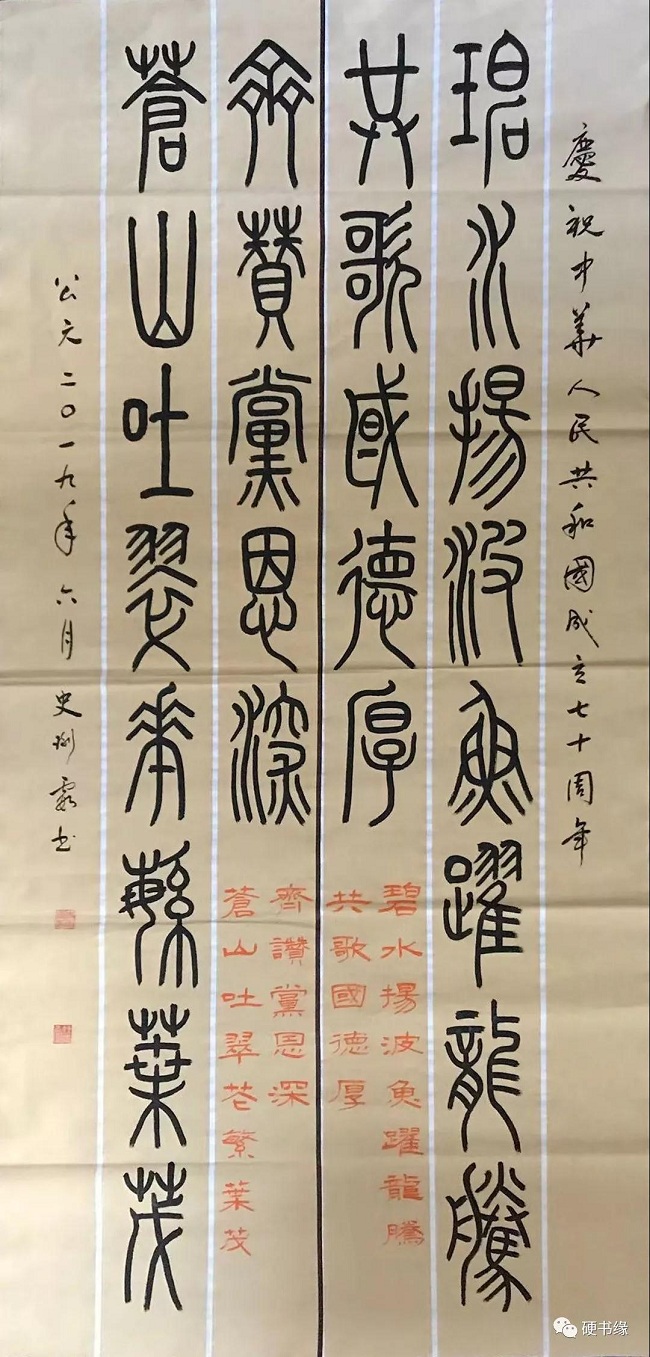 慶祝中華人民共和國成立七十周年
碧水揚波魚躍龍騰
共歌國德厚
碧水揚波魚躍龍騰
共歌國德厚
齊贊黨恩深
蒼山吐翠花繁葉茂
齊讚黨恩深
蒼山吐翠花繁葉茂
公元二〇一九年六月史
書
硬书缘